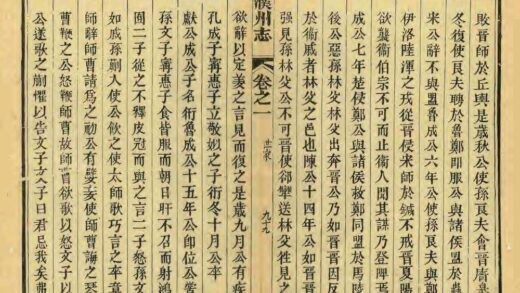 敗晉師於丘輿是歲秋公使孫良夫會晉
冬復使良夫聘於魯鄭即服公與諸侯盟於蟲
來公辭不與盟魯成公六年公使孫良夫與鄭公
伊洛陸渾之戎從晉侵宋師於鍼不戒晉夏陽
欲襲衛伯宗不可而止衛人聞其謀乃登陴
成公七年楚侵鄭公與諸侯救鄭同盟於馬陵
公後惡孫林父林父出奔晉公乃如晉晉因反
於衛戚者林父之邑也陳公十四年公如晉晉
强見孫林父公不可晉使郤犨送林父往見之
濮州志 卷之一 世家
欲辭以定姜之言見而復之是歲九月公有疾
孔成子甯惠子立敬姒之子衎冬十月公卒
獻公成公子名衎魯成公十五年公即位公嘗
孫文子甯惠子食皆服而朝日旰不召而射鴻
囿二子從之不釋皮冠而與之言二子怒孫文
如戚孫蒯入使公飲之使太師歌巧言之卒章
師辭師曹請為之初公有嬖妾使師曹誨之琴
鞭之公怒鞭師曹故師曹欲歌以怒文子以
公遂歌之蒯懼以告文子文子曰君忌我矣弗